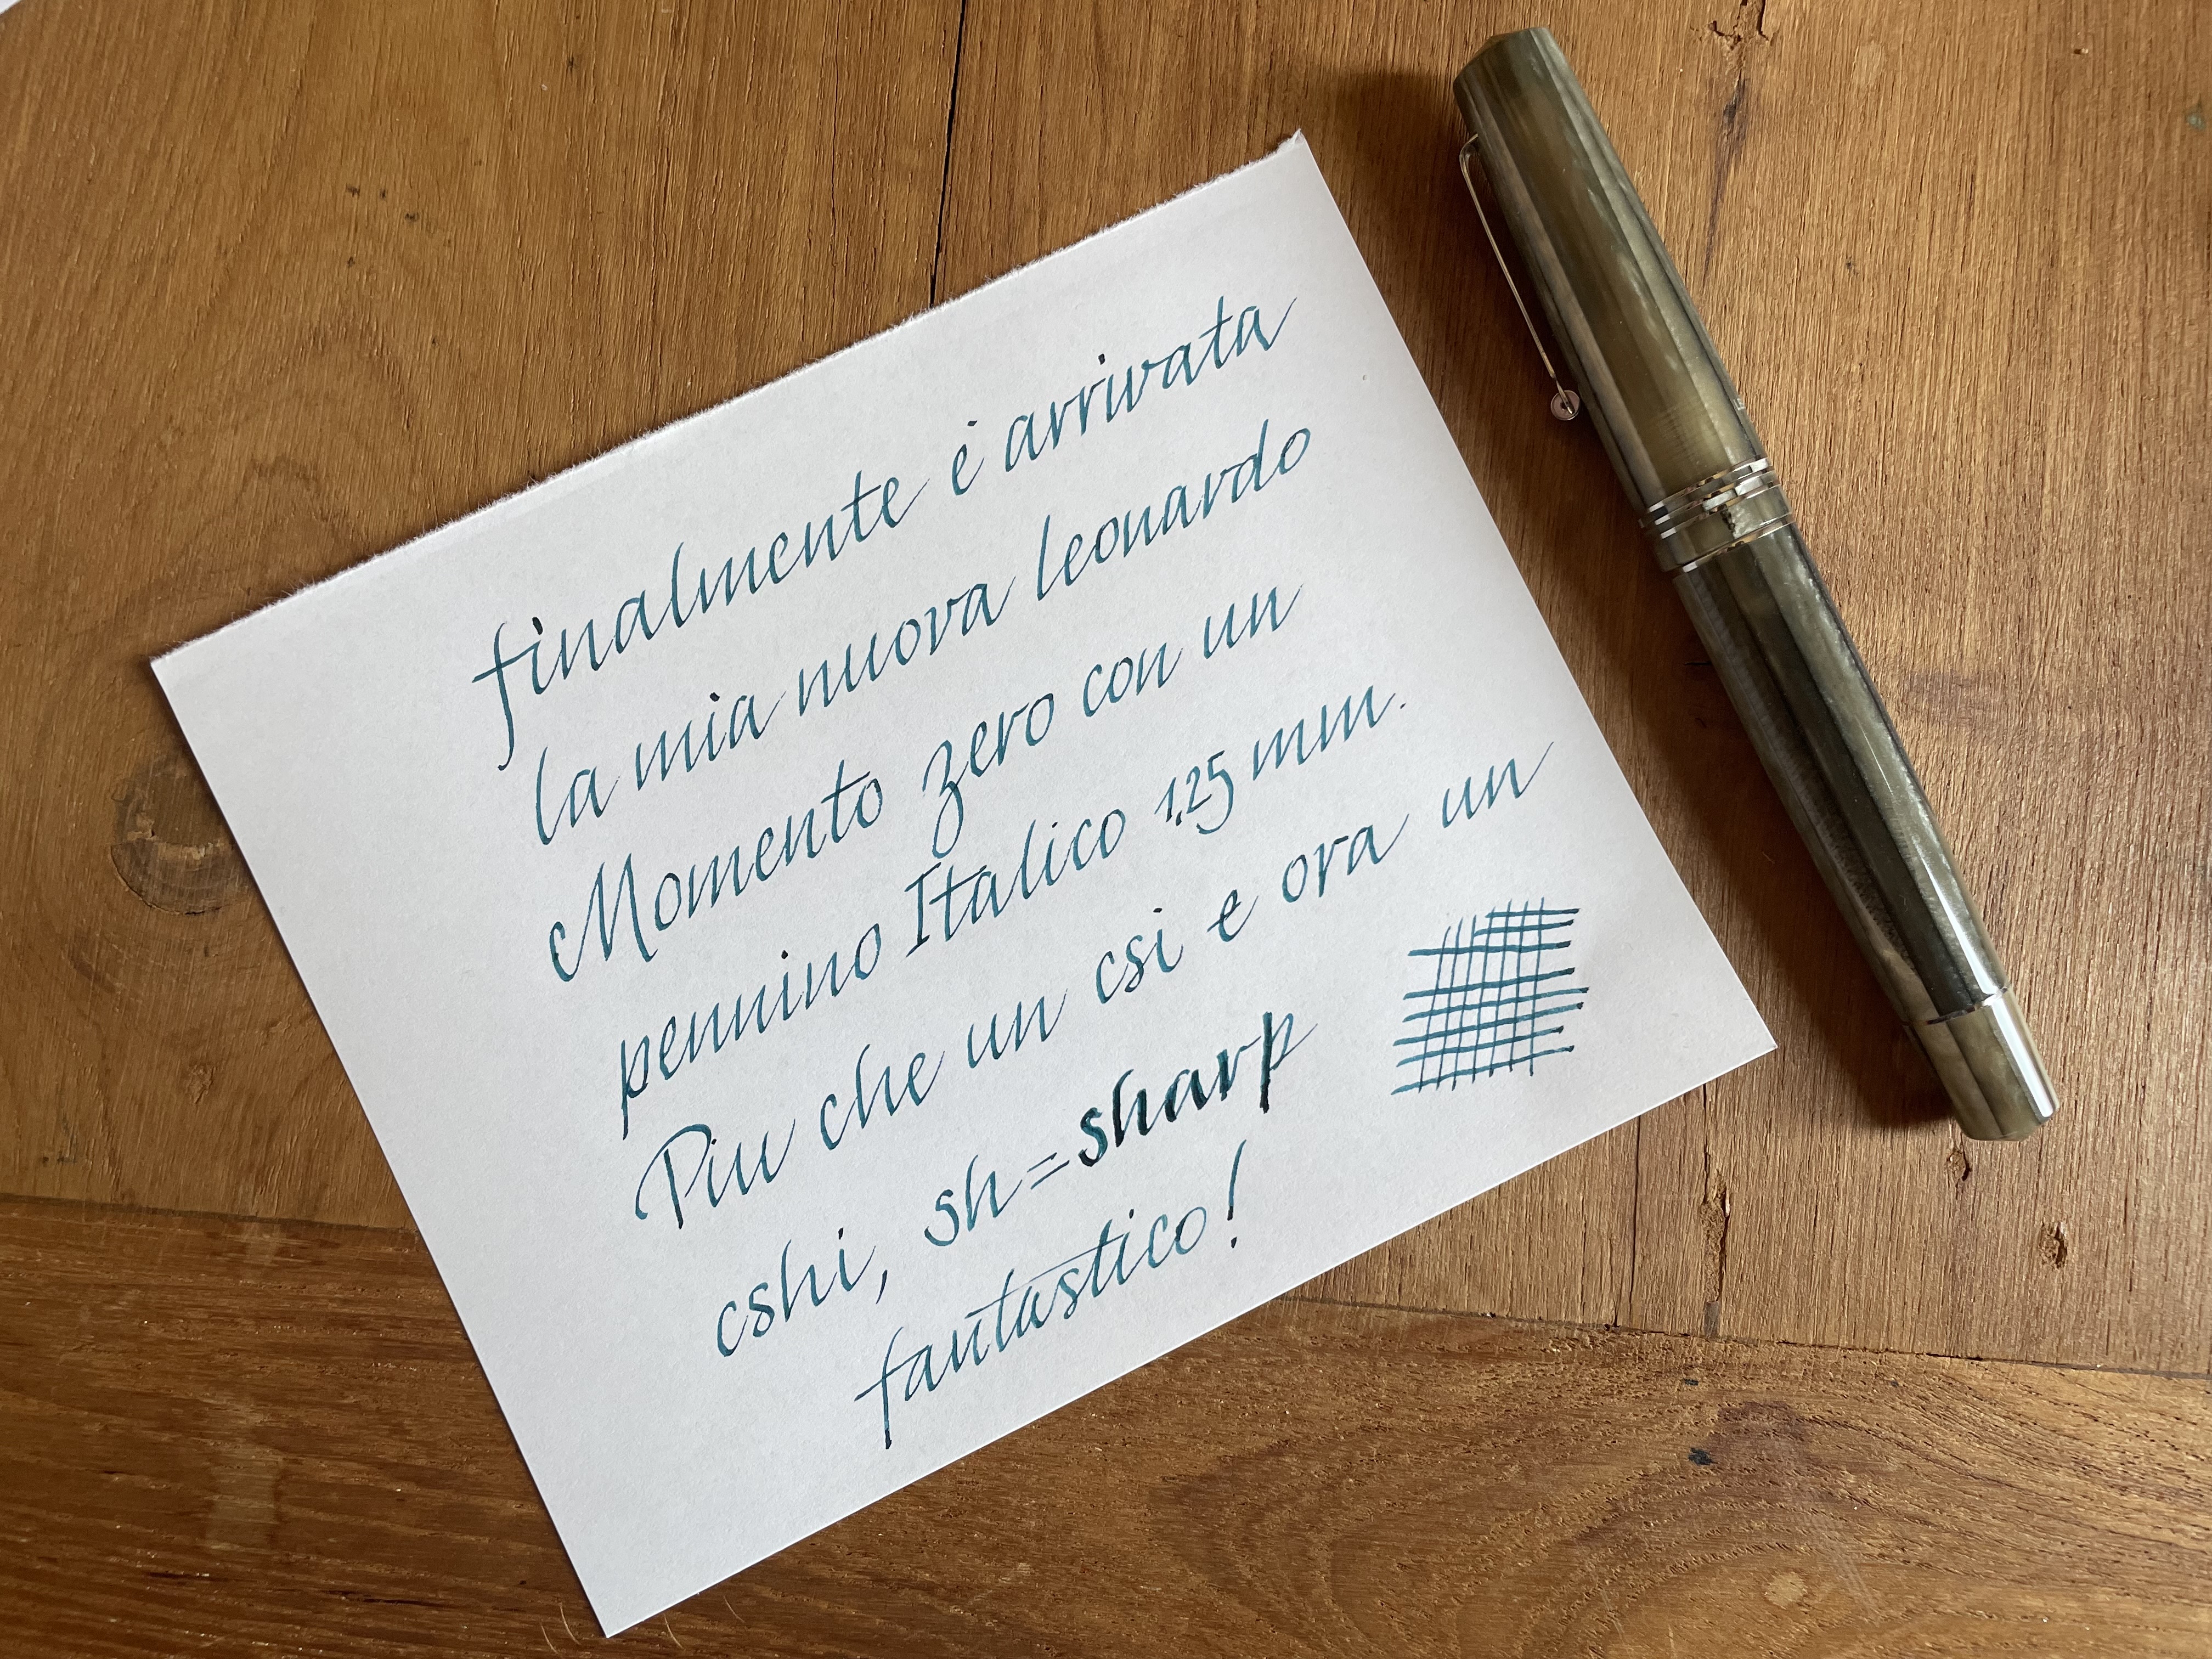 finalmente è arrivata
la mia nuova leonardo
Momento zero con un
pennino Italico 1,25 mm.
Piu che un csi e ora un
cshi, sh=sharp
fantastico!